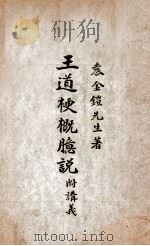 袁金鎧先生著
王道梗概臆説 附講義